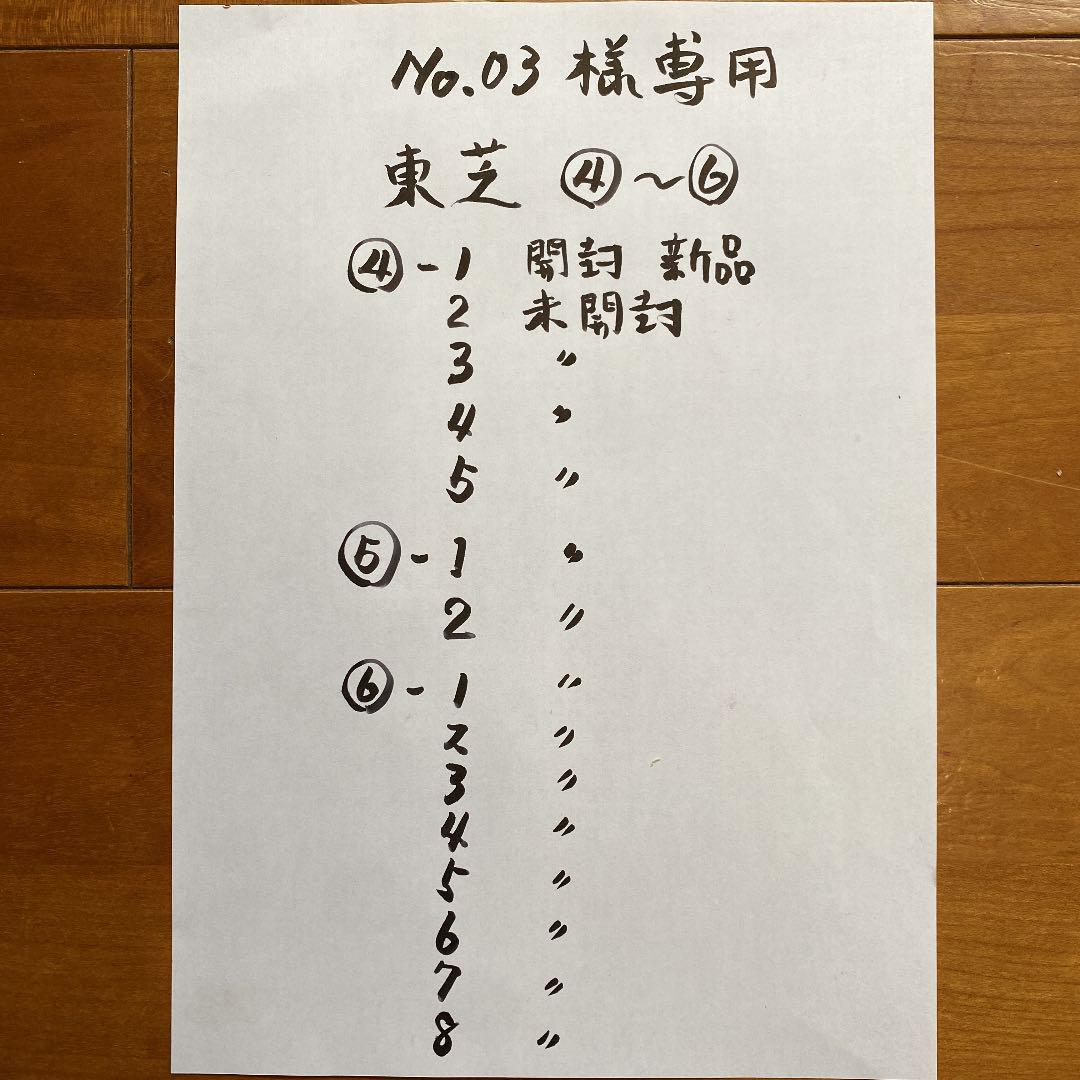 No.03 様専用
東芝 ④〜⑥
④-1 開封 新品
2 未開封
3 〃
4 〃
5 〃
⑤-1 〃
2 〃
⑥-1 〃
2 〃
3 〃
4 〃
5 〃
6 〃
7 〃
8 〃